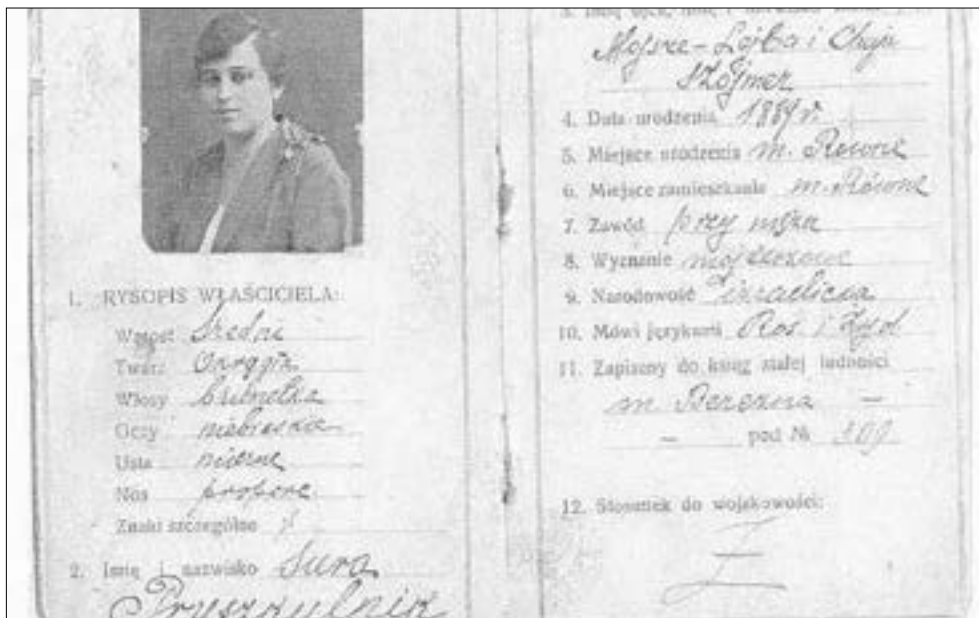 1. RYSOPIS WŁAŚCICIELA:
Wzrost Średni
Twarz Okrągła
Włosy brunetka
Oczy niebieskie
Usta mierne
Nos proporc.
Znaki szczególne
2. Imię i nazwisko Sura
3. Imię ojca, imię i nazwisko
Mojsze-Lejba i Chaja
4. Data urodzenia 1889 r.
5. Miejsce urodzenia m. Równe
6. Miejsce zamieszkania m. Równe
7. Zawód przy mężu
8. Wyznanie mojżeszowe
9. Narodowość
10. Mówi językami Ros. i Żyd.
11. Zapisany do ksiąg stałej ludności
m. Berezna —
— pod № 309
12. Stosunek do wojskowości: